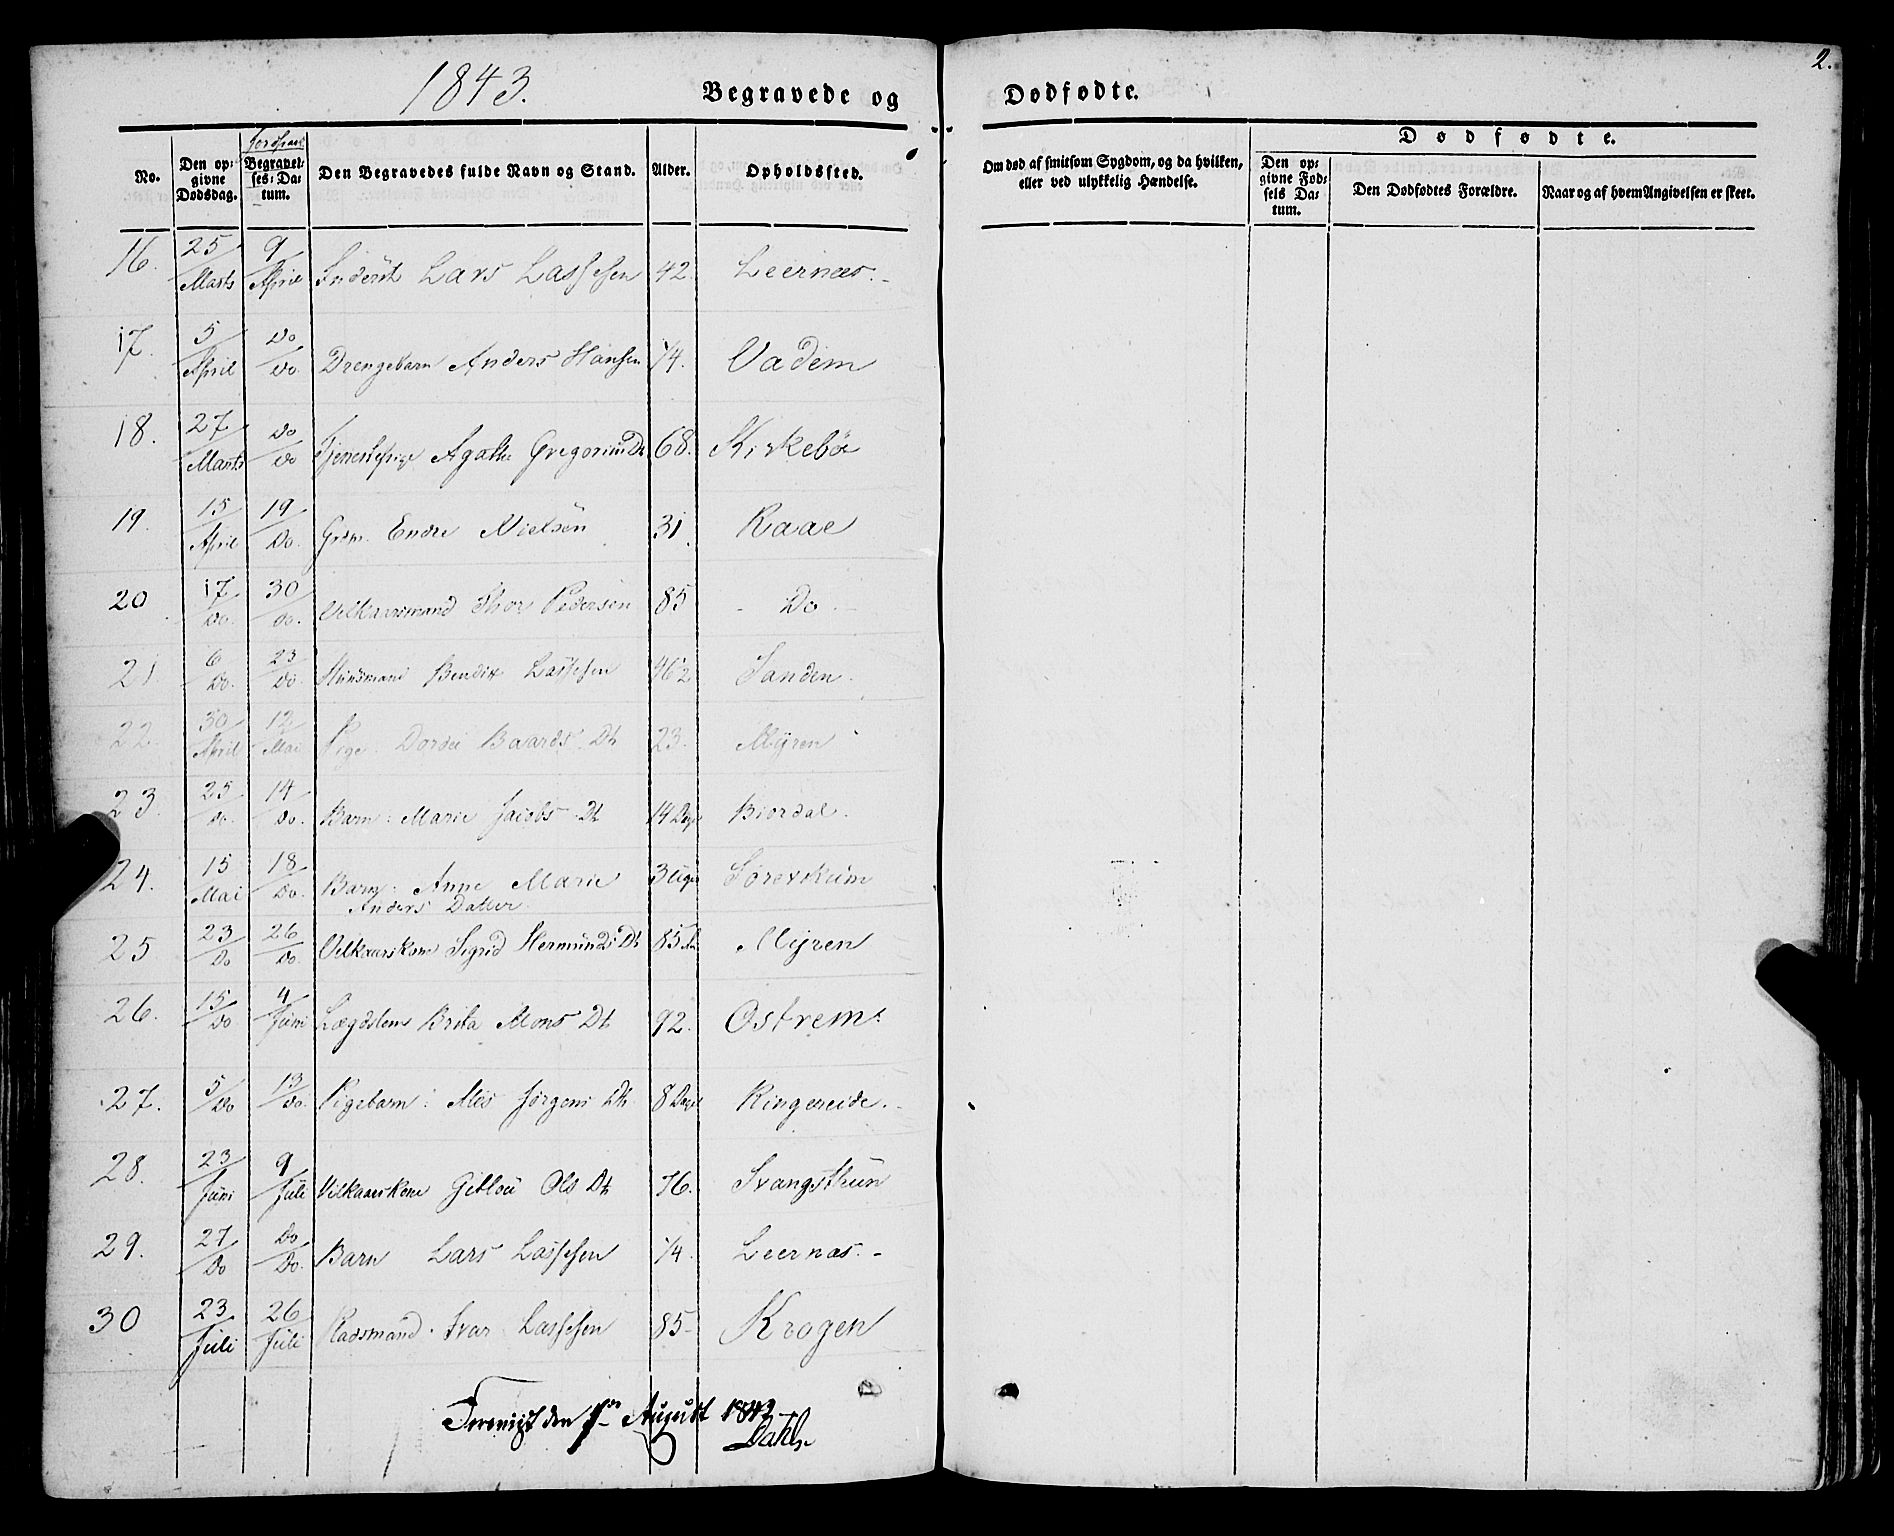 2.
1843. Begravede og Dødfødte.
Jordpaak
No. Den opgivne Dødsdag. Begravelses-Datum. Den Begravedes fulde Navn og Stand. Alder. Opholdssted. Om død af smitsom Sygdom, og da hvilken, eller ved ulykkelig Hændelse. Dødfødte. Den opgivne Fødsels Datum. Den Dødfødtes Forældre. Naar og af hvem Angivelsen er skeet.
16. 25/Marts 9/April Inderst Lars Lassesen 42. Leernæs.-
17. 5/April Do/Do Drengebarn Anders Hansen 1/4. Vadem
18. 27/Marts Do/Do Tjenestepige Agathe Gregorius Dt 68. Kirkebøe
19. 15/April 19/Do. Grdm. Endre Nielsen 31. Raae
20 17/Do. 30/Do. Vilkaarsmand Thor Pedersen 85 - Do. -
21. 6/Do. 23/Do. Huusmand Bendix Lassesen 46½ Sanden.
22. 30/April 12/Mai Pige. Dordei Baards Dt 23. Myren
23. 25/Do. 14/Do. Barn: Marie Jacobs Dt 14 Dage Biordal.
24. 15/Mai 18/Do. Barn: Anne Marie 3 Uger Sørevkum
Anders Datter.
25. 23/Do 26/Do. Vilkaarskone Sigrid Hermunds Dt 85 Myren
26. 15/Do 4/Juni Lægdslem Brita Mons Dt 92. Østrem.
27. 5/Do 13/Do. Pigebarn: Jørgens Dt. 8 Dage Ringereide.-
28. 23/Juni 9/Juli Vilkaarskone Gitloü Ols Dt 76. Svangsthun
29. 27/Do Do/Do. Barn Lars Lassesen 1/4. Leernæs.-
30 23/Juli 26/Juli Radsmand. Ivar Lassesen 85- Krogen
Forevist den 1ste August 1843
Dahl.